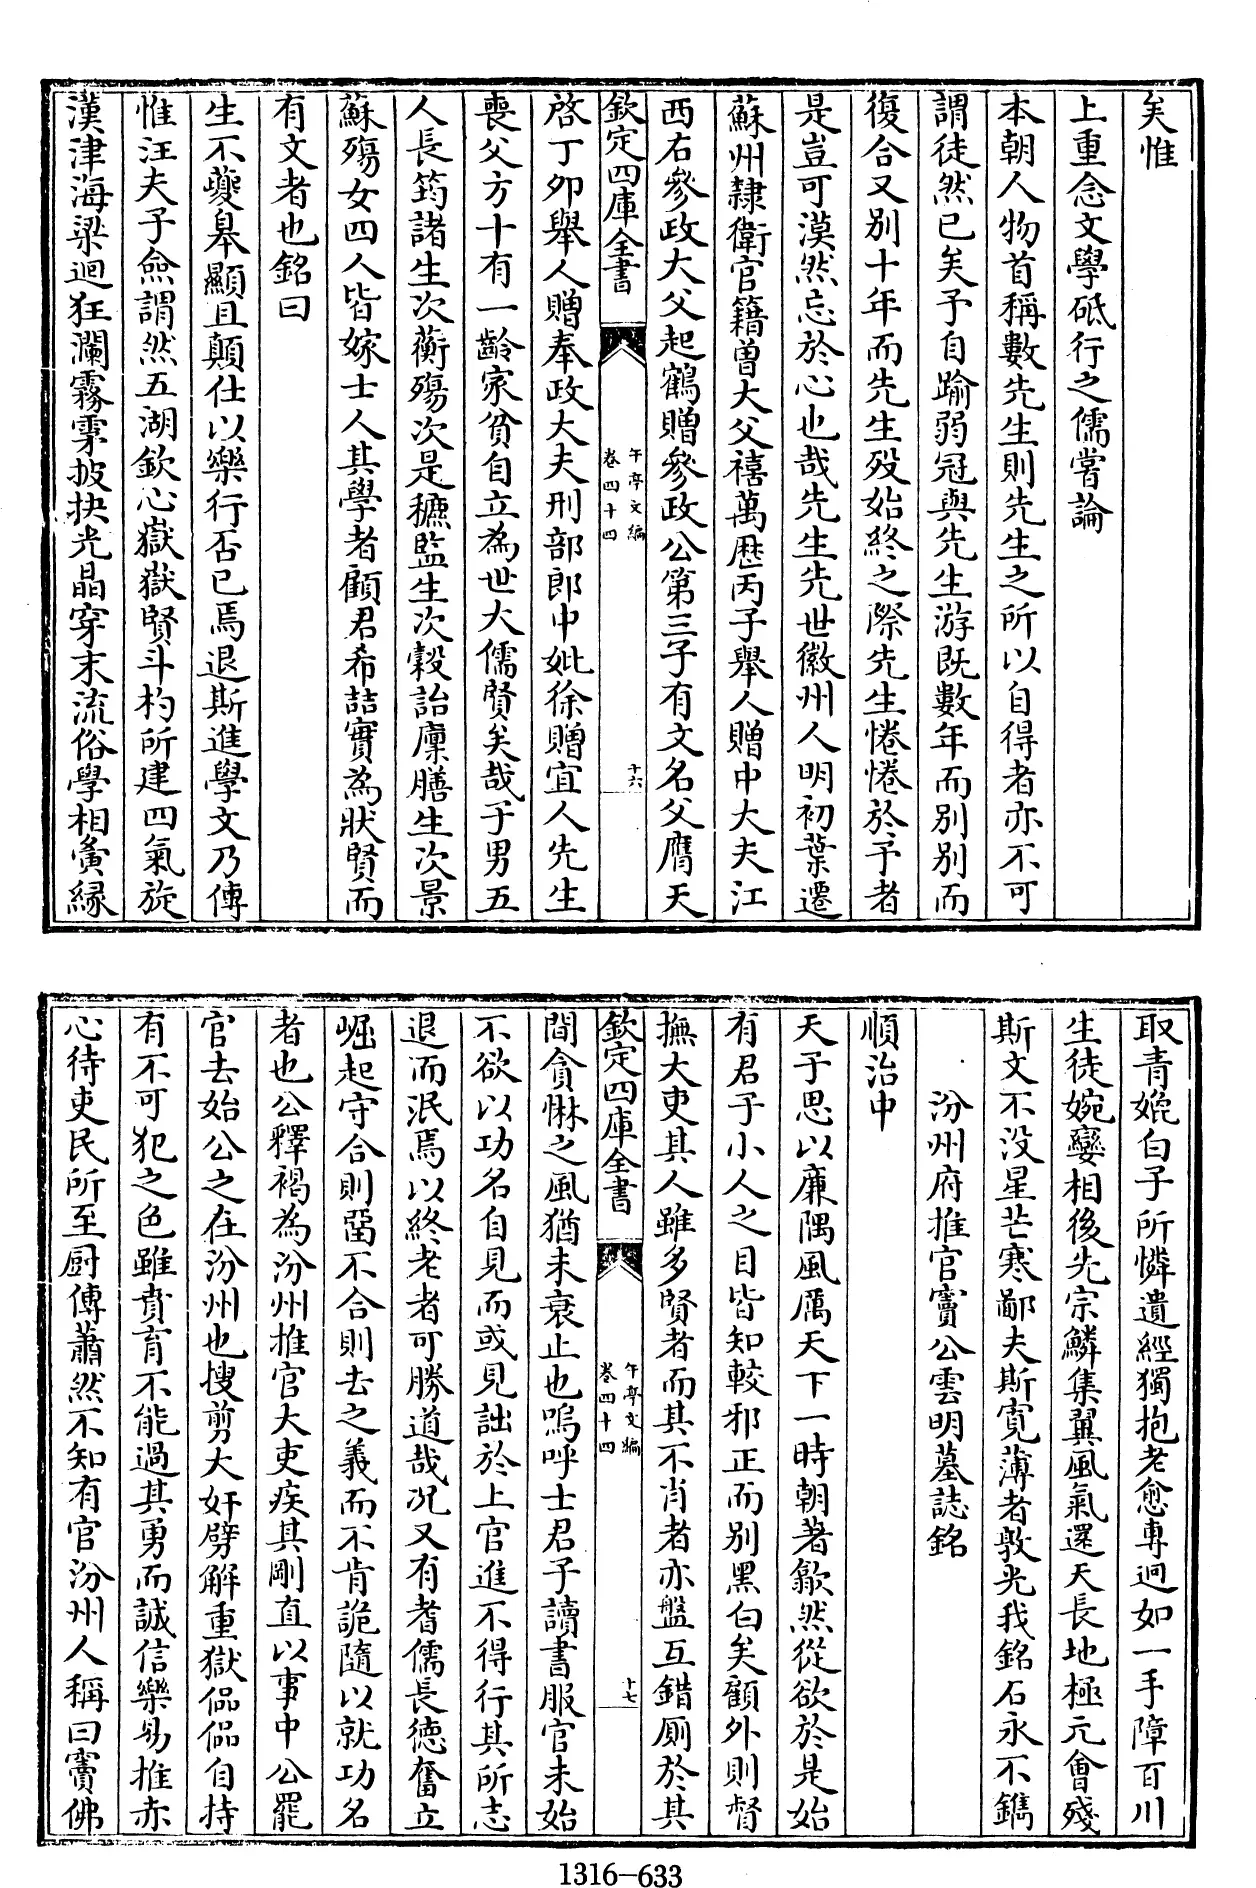 矣惟
上重念文學砥行之儒嘗論
本朝人物首稱數先生則先生之所以自得者亦不可
謂徒然已矣予自踰弱冠與先生游既數年而別別而
復合又別十年而先生歿始終之際先生惓惓於予者
是豈可漠然忘於心也哉先生先世徽州人明初葉遷
蘇州隷衛官籍曽大父禧萬厯丙子舉人贈中大夫江
西右參政大父起鶴贈參政公第三子有文名父膺天
欽定四庫全書
午亭文編
卷四十四
十六
啓丁夘舉人贈奉政大夫刑部郎中妣徐贈宜人先生
喪父方十有一齡家貧自立為世大儒賢矣哉子男五
人長筠諸生次蘅殤次是穮監生次穀詒廩膳生次景
蘇殤女四人皆嫁士人其學者顧君希喆實為狀賢而
有文者也銘曰
生不夔臯顯且顛仕以樂行否已焉退斯進學文乃傳
惟汪夫子僉謂然五湖欽心嶽嶽賢斗杓所建四氣旋
漢津海梁迴狂瀾霧雺披抉光晶穿末流俗學相夤緣
取青媲白子所憐遺經獨抱老愈専迴如一手障百川
生徒婉孌相後先宗鱗集翼風氣還天長地極元會殘
斯文不没星芒寒鄙夫斯寛薄者敦光我銘石永不鐫
汾州府推官竇公雲明墓誌銘
順治中
天子思以廉隅風厲天下一時朝著歙然從欲於是始
有君子小人之目皆知較邪正而别黑白矣顧外則督
撫大吏其人雖多賢者而其不肖者亦盤互錯厠於其
欽定四庫全書
午亭文編
卷四十四
十七
間貪惏之風猶未衰止也嗚呼士君子讀書服官未始
不欲以功名自見而或見詘於上官進不得行其所志
退而泯焉以終老者可勝道哉况又有耆儒長德奮立
崛起守合則留不合則去之義而不肯詭隨以就功名
者也公釋褐為汾州推官大吏疾其剛直以事中公罷
官去始公之在汾州也搜剪大奸劈解重獄侃侃自持
有不可犯之色雖賁育不能過其勇而誠信樂易推赤
心待吏民所至厨傳蕭然不知有官汾州人稱曰竇佛
1316-633